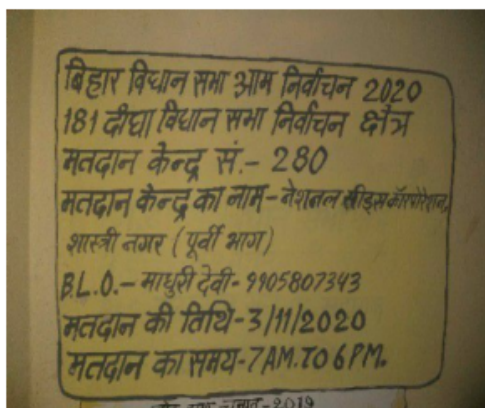 बिहार विधान सभा आम निर्वाचन 2020
181 दीघा विधान सभा निर्वाचन क्षेत्र
मतदान केन्द्र सं.- 280
मतदान केन्द्र का नाम-नेशनल सीड्स कॉरपोरेशन,
शास्त्री नगर (पूर्वी भाग)
B.L.O.- माधुरी देवी- 9905807343
मतदान की तिथि-3/11/2020
मतदान का समय-7AM.TO 6PM.
2019